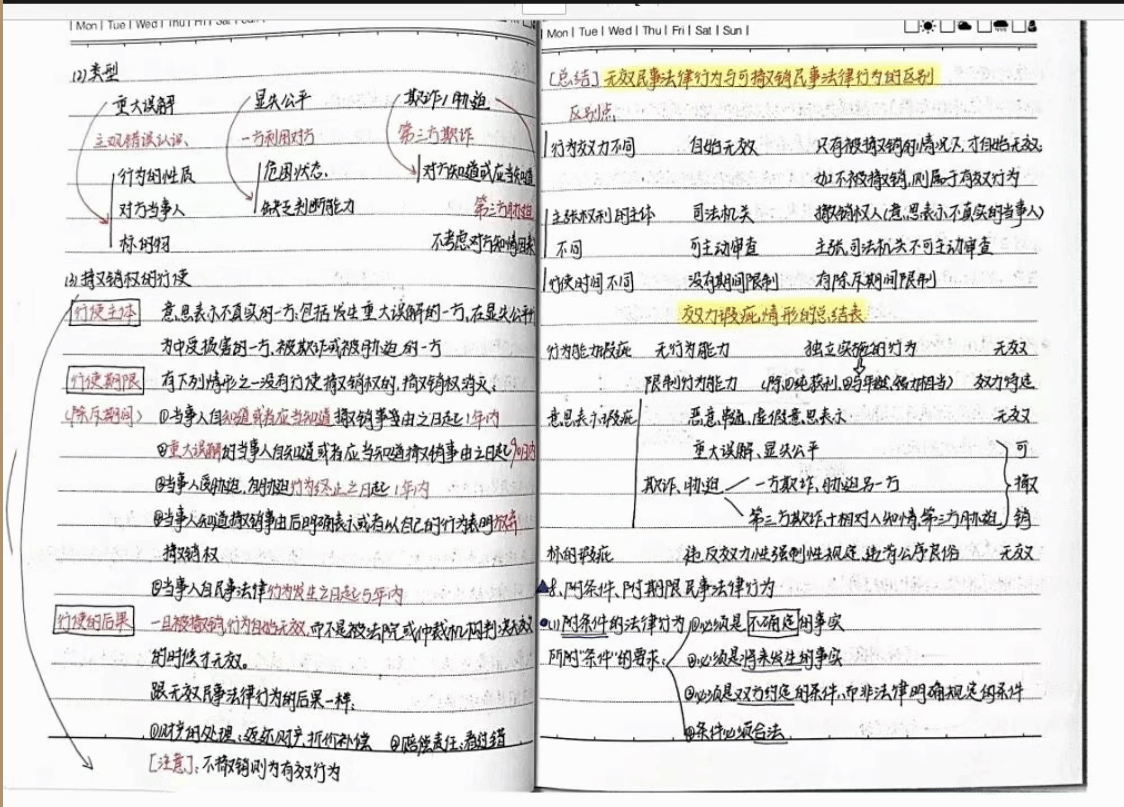 Mon | Tue | Wed | Thu | Fri | Sat | Sun |
(2) 类型
重大误解 显失公平 欺诈/胁迫
主观错误认识、 一方利用对方 第三方欺诈
行为的性质 危困状态、 对方知道或应当知道
对方当事人 缺乏判断能力 第三方胁迫
标的物 不考虑对方知情因素
(3) 撤销权的行使
行使主体 意思表示不真实的一方:包括发生重大误解的一方,在显失公平行
为中受损害的一方、被欺诈或被胁迫的一方
行使期限 有下列情形之一没有行使撤销权的,撤销权消灭:
(除斥期间) ①当事人自知道或者应当知道撤销事由之日起1年内
②重大误解的当事人自知道或者应当知道撤销事由之日起90日内
③当事人受胁迫,自胁迫行为终止之日起1年内
④当事人知道撤销事由后明确表示或者以自己的行为表明放弃
撤销权
⑤当事人自民事法律行为发生之日起5年内
行使的后果 一旦被撤销,行为自始无效,而不是被法院或仲裁机构判决无效
的时候才无效。
跟无效民事法律行为的后果一样:
①财产的处理:返还财产、折价补偿 ②赔偿责任:看过错
[注意]:不撤销则为有效行为
Mon | Tue | Wed | Thu | Fri | Sat | Sun |
[总结] 无效民事法律行为与可撤销民事法律行为的区别
区别点:
行为效力不同 自始无效 只有被撤销的情况下,才自始无效;
如不被撤销,则属于有效行为
主张权利的主体 司法机关 撤销权人(意思表示不真实的当事人)
不同 可主动审查 主张,司法机关不可主动审查
行使时间不同 没有期间限制 有除斥期间限制
效力瑕疵情形的总结表
行为能力瑕疵 无行为能力 独立实施的行为 无效
限制行为能力 (除①纯获利,②与年龄、智力相当) 效力待定
意思表示瑕疵 恶意串通、虚假意思表示 无效
重大误解、显失公平 可
欺诈、胁迫 一方欺诈、胁迫另一方 撤
第三方欺诈+相对人知情,第三方胁迫 销
标的瑕疵 违反效力性强制性规定、违背公序良俗 无效
8、附条件、附期限民事法律行为
(1) 附条件的法律行为 ①必须是不确定的事实
所附"条件"的要求: ②必须是将来发生的事实
③必须是双方约定的条件,而非法律明确规定的条件
④条件必须合法